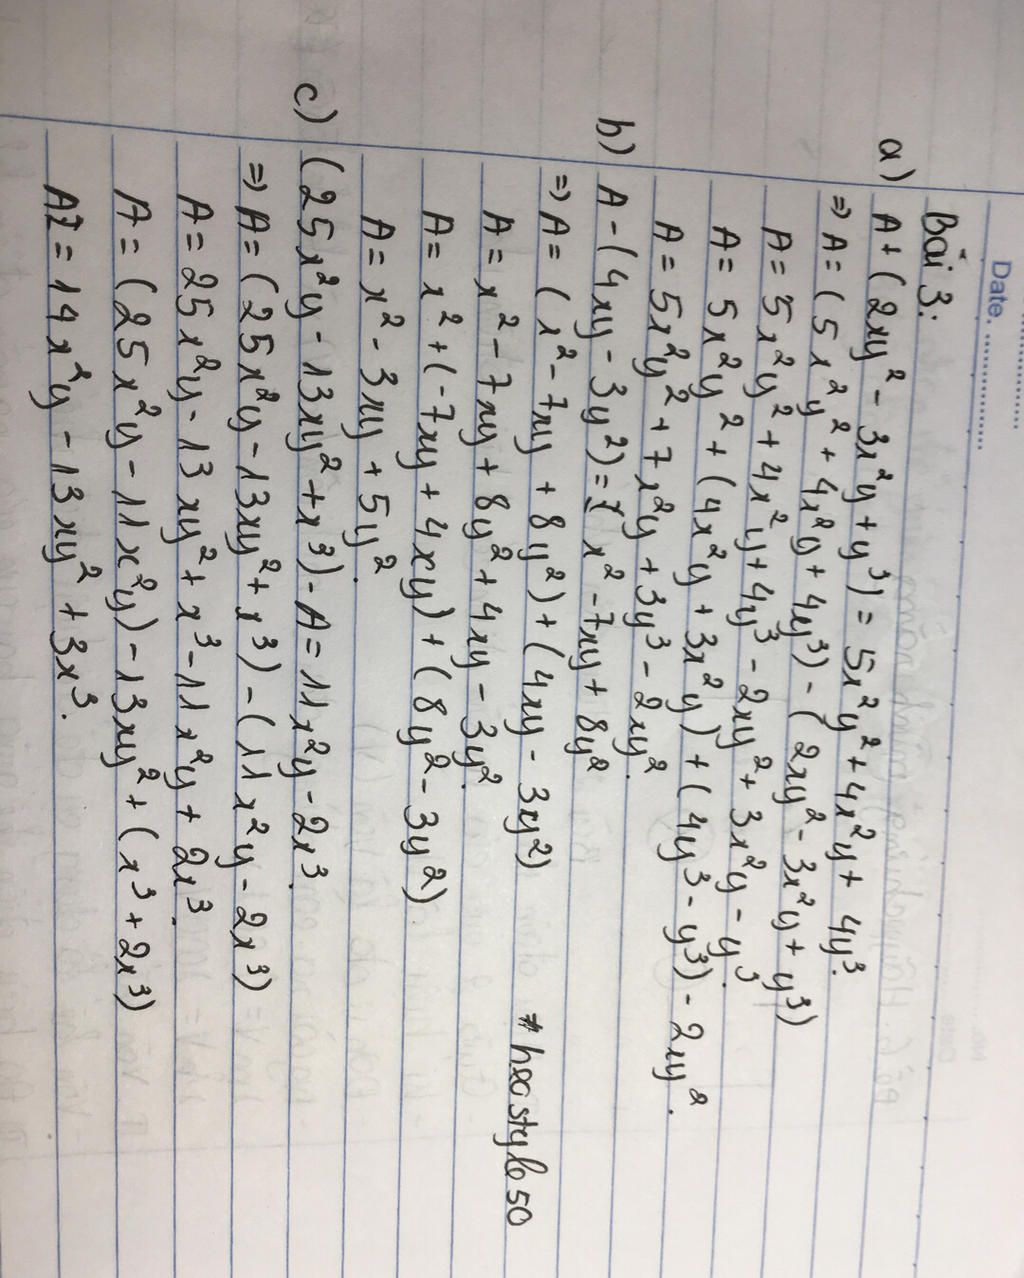 Date. ................
Bài 3:
a) A + (2xy² - 3x²y + y³) = 5x²y² + 4x²y + 4y³.
⇒ A = (5x²y² + 4x²y + 4y³) - (2xy² - 3x²y + y³)
A = 5x²y² + 4x²y + 4y³ - 2xy² + 3x²y - y³.
A = 5x²y² + (4x²y + 3x²y) + (4y³ - y³) - 2xy².
A = 5x²y² + 7x²y + 3y³ - 2xy².
b) A - (4xy - 3y²) = x² - 7xy + 8y²
⇒ A = (x² - 7xy + 8y²) + (4xy - 3y²)
A = x² - 7xy + 8y² + 4xy - 3y².
A = x² + (-7xy + 4xy) + (8y² - 3y²).
A = x² - 3xy + 5y².
c) (25x²y - 13xy² + x³) - A = 11x²y - 2x³.
⇒ A = (25x²y - 13xy² + x³) - (11x²y - 2x³)
A = 25x²y - 13xy² + x³ - 11x²y + 2x³.
A = (25x²y - 11x²y) - 13xy² + (x³ + 2x³)
A = 14x²y - 13xy² + 3x³.